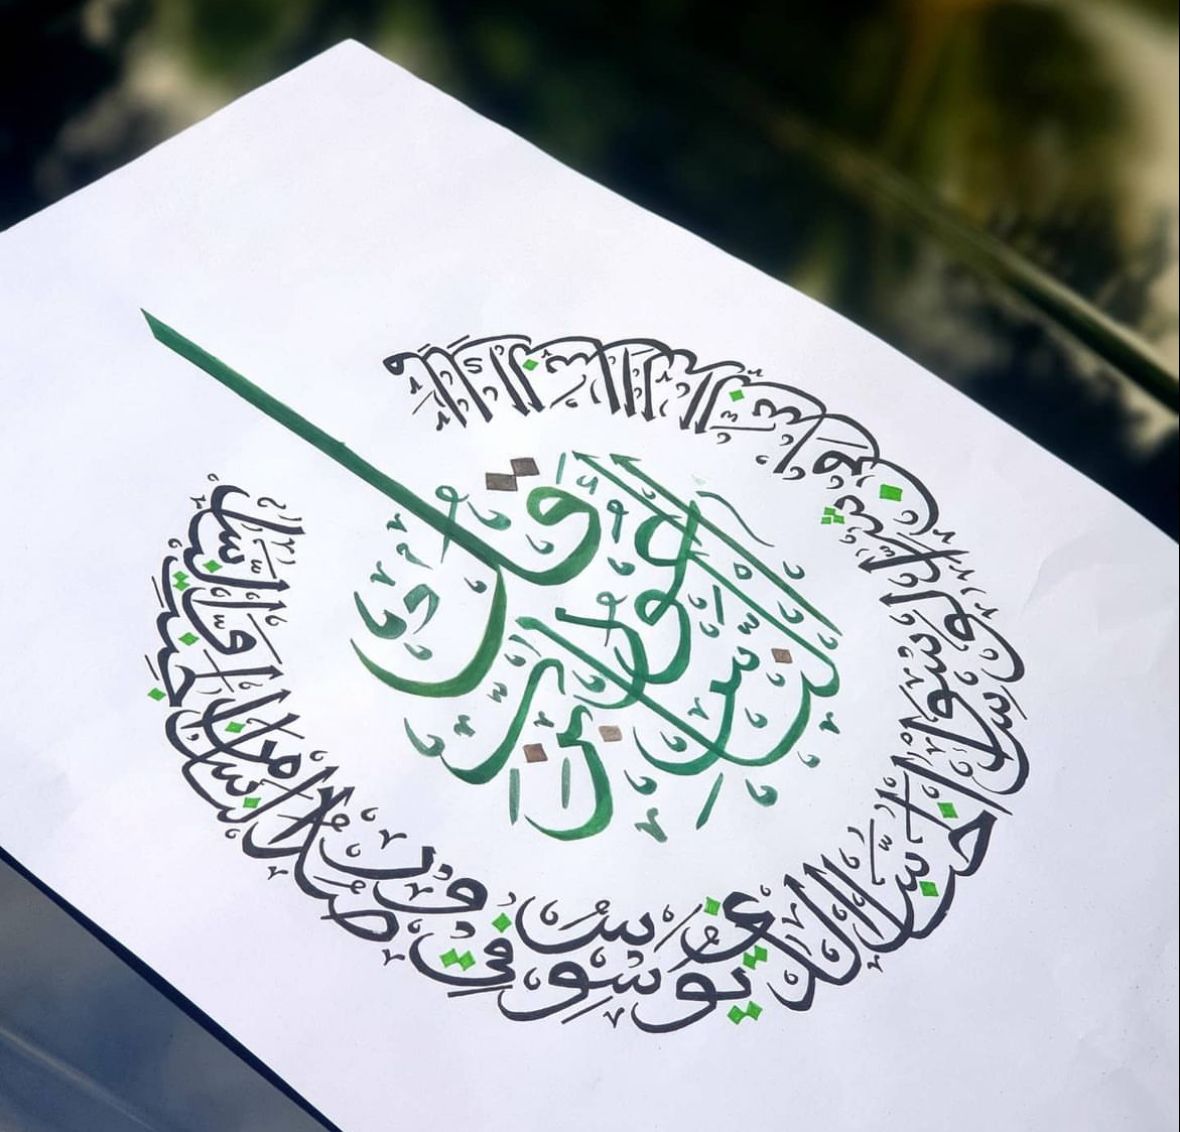 قل أعوذ برب الناس
ملك الناس إله الناس من شر الوسواس الخناس الذي يوسوس في صدور الناس من الجنة والناس